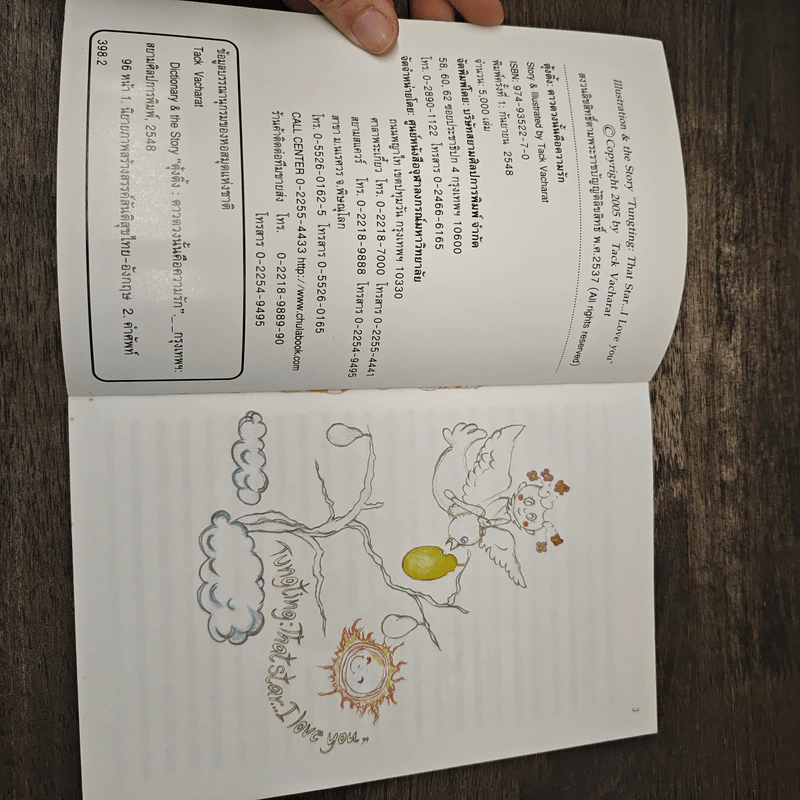 Illustration & the Story "Tungting: That Star...I Love you"
© Copyright 2005 by Tack Vacharat
สงวนลิขสิทธิ์ตามพระราชบัญญัติลิขสิทธิ์ พ.ศ.2537 (All rights reserved)
ตุ้งติ้ง: ดาวดวงนั้นคือความรัก
Story & Illustrated by Tack Vacharat
ISBN: 974-93522-7-0
พิมพ์ครั้งที่ 1: กันยายน 2548
จำนวน: 5,000 เล่ม
จัดพิมพ์โดย: บริษัทสยามศิลปการพิมพ์ จำกัด
58, 60, 62 ซอยประชาธิปก 4 กรุงเทพฯ 10600
โทร. 0-2890-1122 โทรสาร 0-2466-6165
จัดจำหน่ายโดย: ศูนย์หนังสือจุฬาลงกรณ์มหาวิทยาลัย
ถนนพญาไท เขตปทุมวัน กรุงเทพฯ 10330
ศาลาพระเกี้ยว โทร. 0-2218-7000 โทรสาร 0-2255-4441
สยามสแควร์ โทร. 0-2218-9888 โทรสาร 0-2254-9495
สาขา ม.นเรศวร จ.พิษณุโลก
โทร. 0-5526-0162-5 โทรสาร 0-5526-0165
CALL CENTER 0-2255-4433 http://www.chulabook.com
ร้านค้าติดต่อทีมขายส่ง โทร. 0-2218-9889-90
โทรสาร 0-2254-9495
ข้อมูลบรรณานุกรมของหอสมุดแห่งชาติ
Tack Vacharat
Dictionary & the Story "ตุ้งติ้ง : ดาวดวงนั้นคือความรัก".__กรุงเทพฯ:
สยามศิลปการพิมพ์, 2548
96 หน้า 1. นิยายภาพสร้างสรรค์สันติสุขไทย-อังกฤษ 2. คำศัพท์
398.2
Tungting: That star...I love you"
3